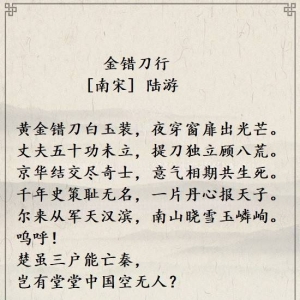 金错刀行
[南宋] 陆游
黄金错刀白玉装，夜穿窗扉出光芒。
丈夫五十功未立，提刀独立顾八荒。
京华结交尽奇士，意气相期共生死。
千年史策耻无名，一片丹心报天子。
尔来从军天汉滨，南山晓雪玉嶙峋。
呜呼！
楚虽三户能亡秦，
岂有堂堂中国空无人？